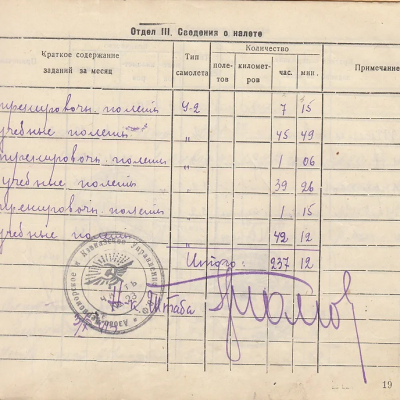 Отдел III. Сведения о налете
Краткое содержание заданий за месяц
Тип самолета
Количество
полетов
километров
час.
мин.
Примечание
тренировочн. полеты У-2 7 15
учебные полеты " 45 49
тренировочн. полеты " 1 06
учебные полеты " 39 26
тренировочн. полеты " 1 15
учебные полеты " 42 12
Итого: 237 12
Н-к Штаба
19